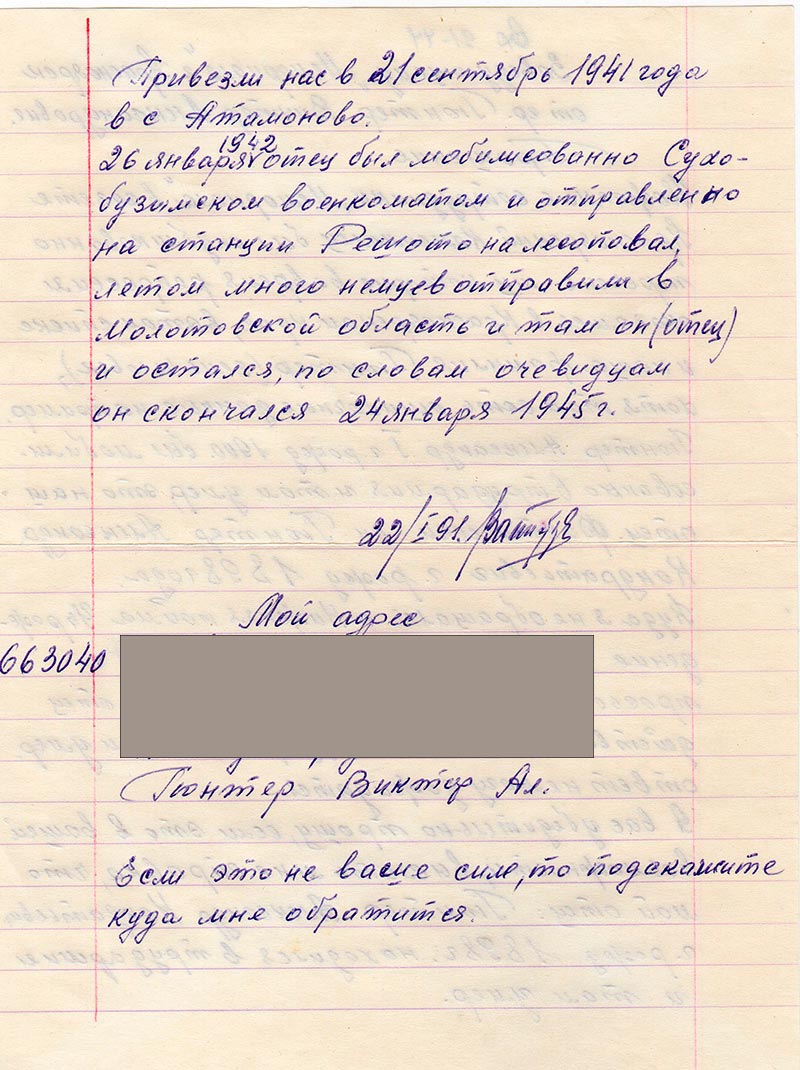 Привезли нас в 21 сентябрь 1941 года
в с Атамоново.
1942
26 января отец был мобилисованно Сухо-
бузимском военкоматом и отправленно
на станции Решото на лесоповал,
летом много немцев отправили в
Молотовской область и там он (отец)
и остался, по словам очевидцам
он скончался 24 января 1945 г.
22/I 91.
Мой адрес
663040
Гюнтер Виктор Ал.
Если это не васие силе, то подскажите
куда мне обратится.